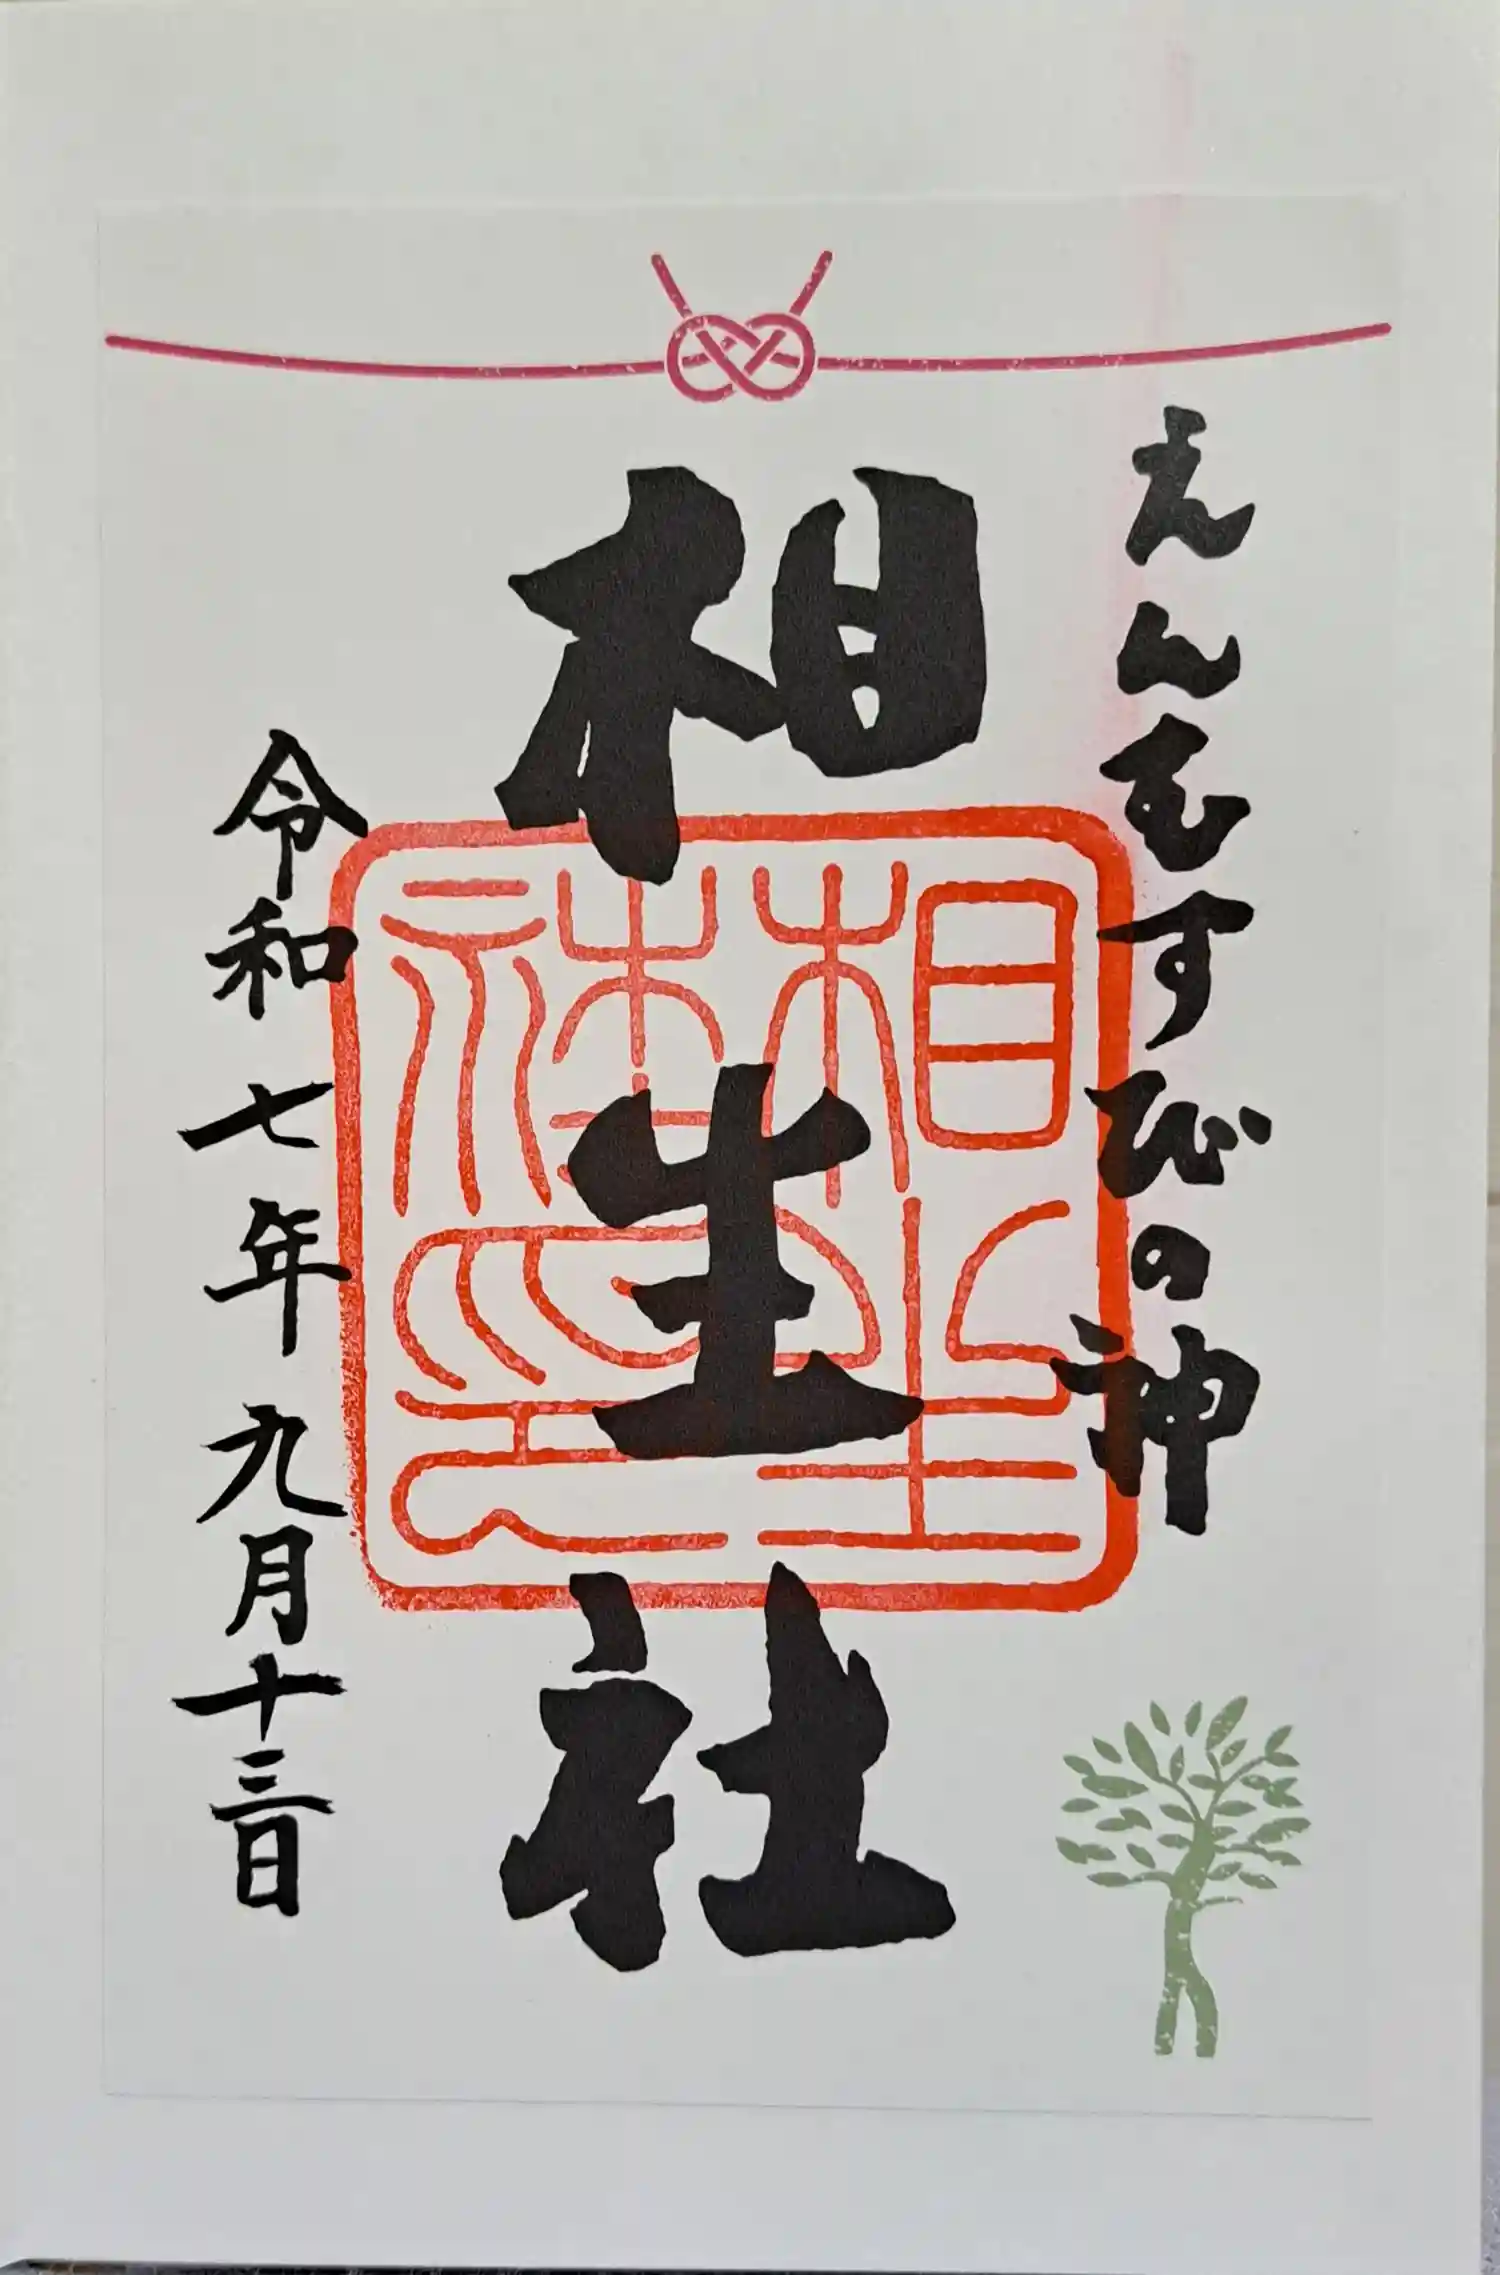 えんむすびの神
相生社
令和七年九月十三日